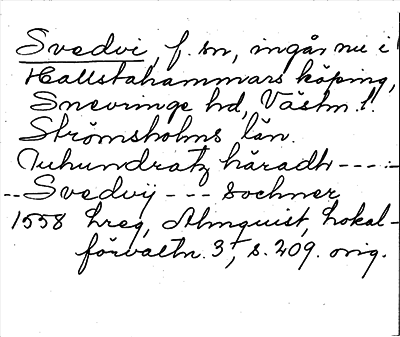 Svedvi, f. sn, ingår nu i
Hallstahammars köping,
Snevringe hd, Västm. l.
Strömsholms län.
Tuhundratz häradh ----
-- Svedvij --- sochner
1558 hreg, Almquist, Lokal-
förvaltn. 3, s. 209. orig.